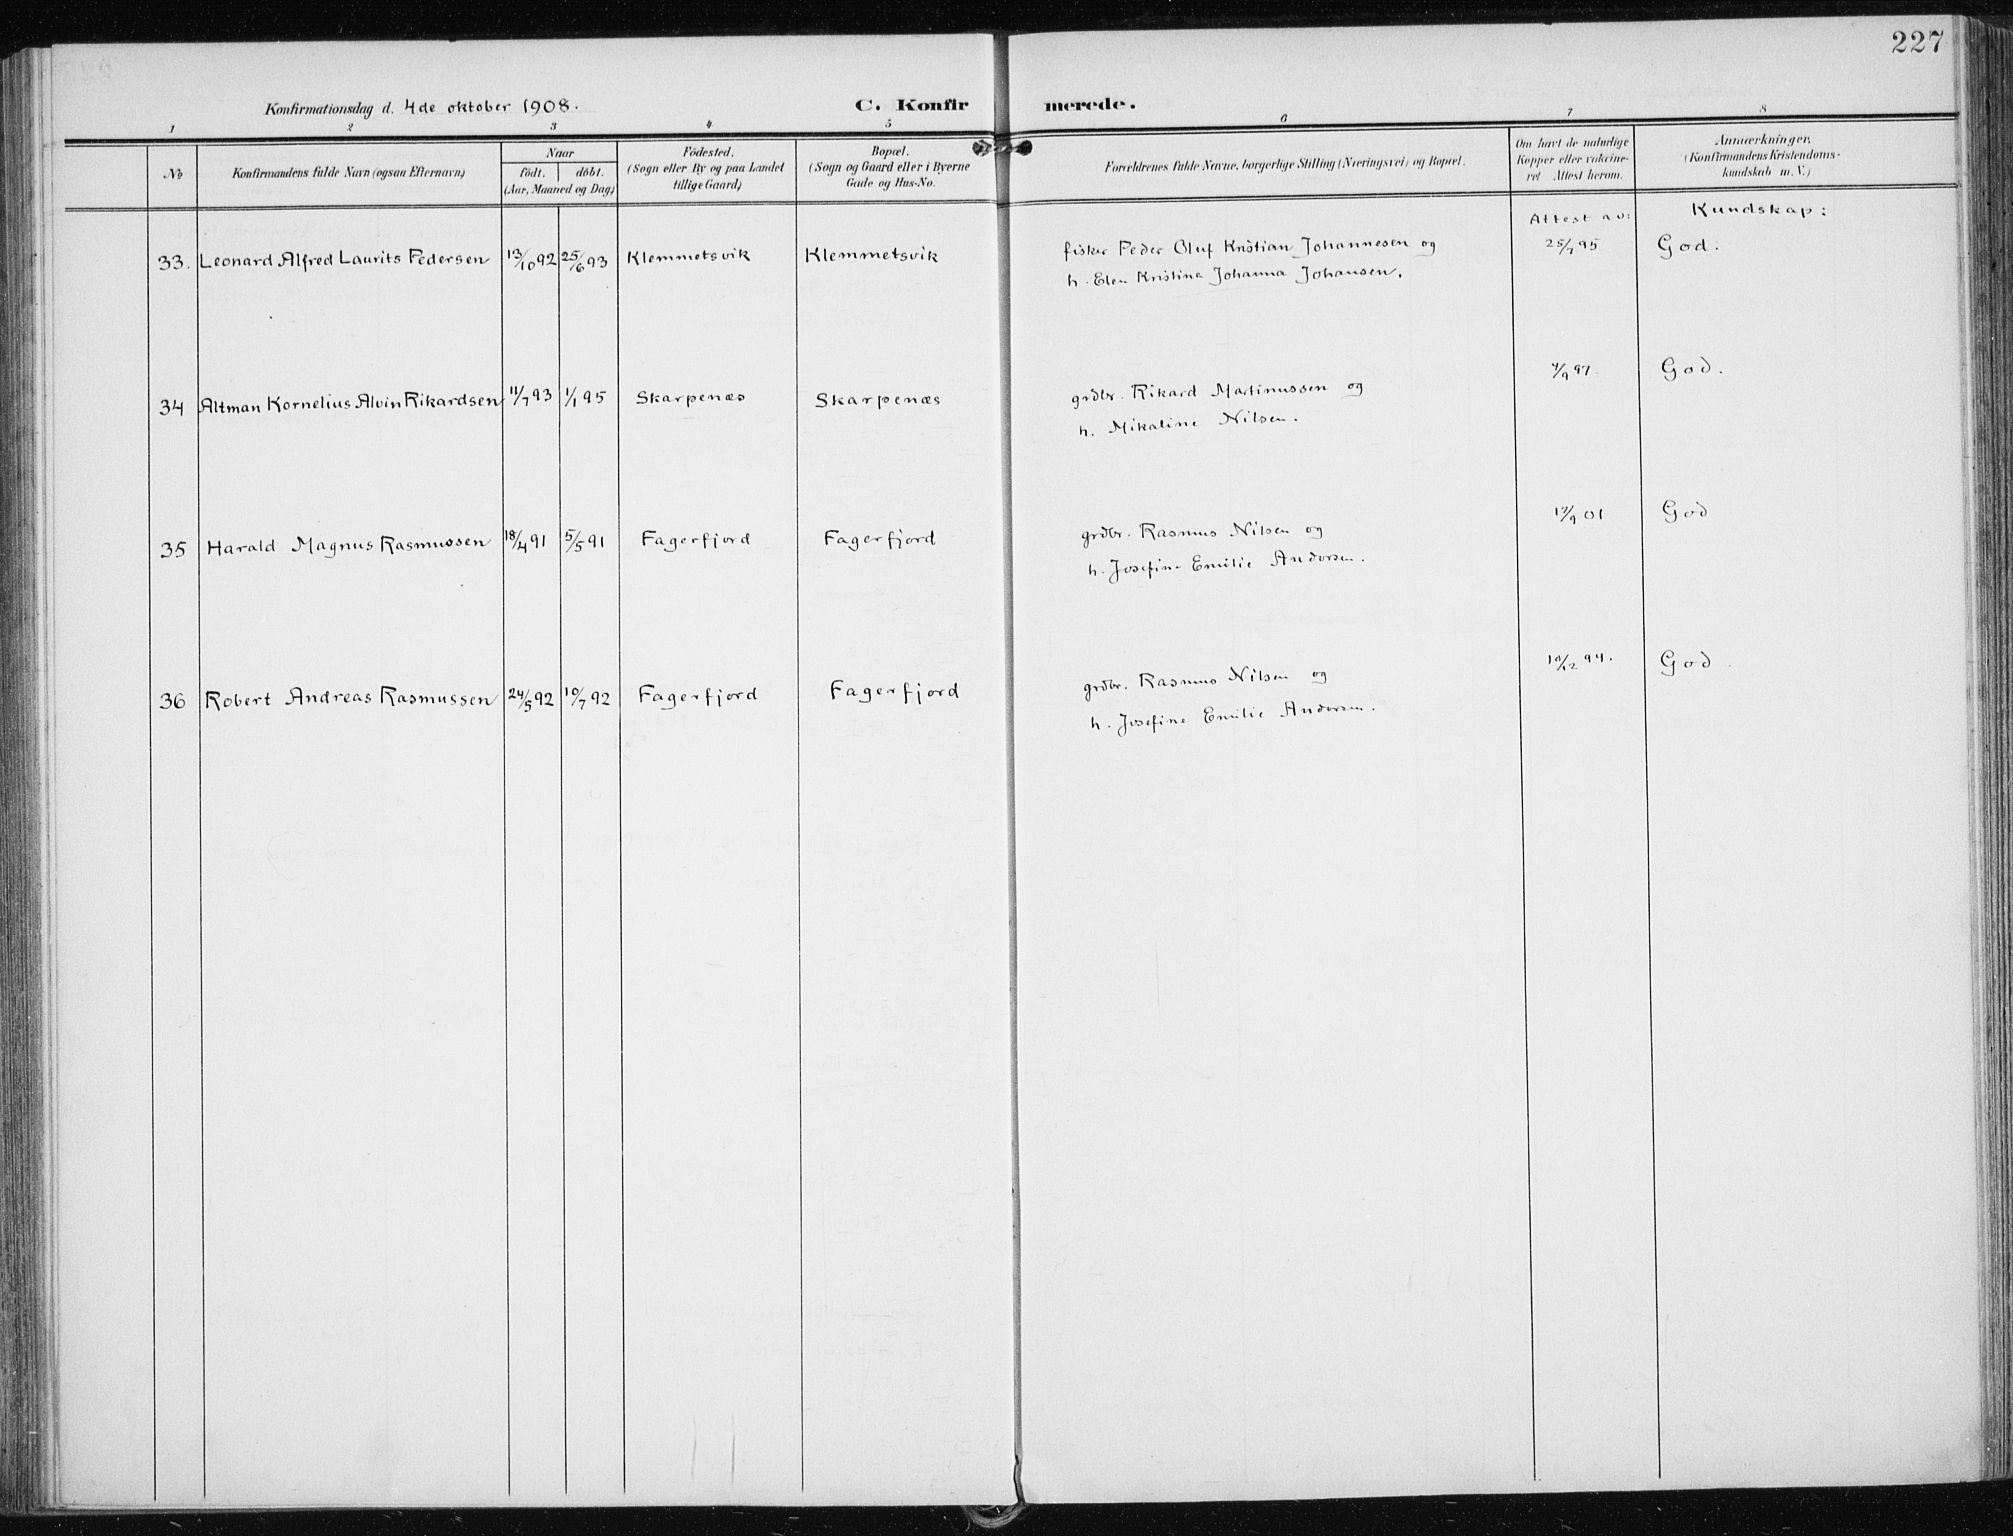 227
Konfirmationsdag d. 4de oktober 1908.
C. Konfirmerede.
1 2 3 4 5 6 7 8
No
Konfirmandens fulde Navn (ogsaa Efternavn)
Naar
født. døbt.
(Aar, Maaned og Dag)
Fødested.
(Sogn eller By og paa Landet
tillige Gaard)
Bopæl.
(Sogn og Gaard eller i Byerne
Gade og Hus-No.
Forældrenes fulde Navne, borgerlige Stilling (Næringsvei) og Bopæl.
Om havt de naturlige
Kopper eller vakcine-
ret Attest herom.
Anmærkninger.
(Konfirmandens Kristendoms-
kundskab m. V.)
Attest av: Kundskap:
33. Leonard Alfred Laurits Pedersen 13/10 92 25/6 93 Klemmetsvik Klemmetsvik fisker Peder Oluf Kristian Johannesen og 25/7 95 God.
h. Elen Kristina Johanna Johansen.
34 Altman Kornelius Alvin Rikardsen 11/7 93 1/1 95 Skarpenæs Skarpenæs grdbr. Rikard Martinussen og /9 97. God.
h. Mikaline Nilsen.
35 Harald Magnus Rasmussen 18/4 91 5/5 91 Fagerfjord Fagerfjord grdbr. Rasmus Nilsen og 17/9 01 God
h. Josefine Emilie Andersen.
36 Robert Andreas Rasmussen 24/5 92 10/7 92 Fagerfjord Fagerfjord grdbr. Rasmus Nilsen og 10/12 94. God.
h. Josefine Emilie Andersen.